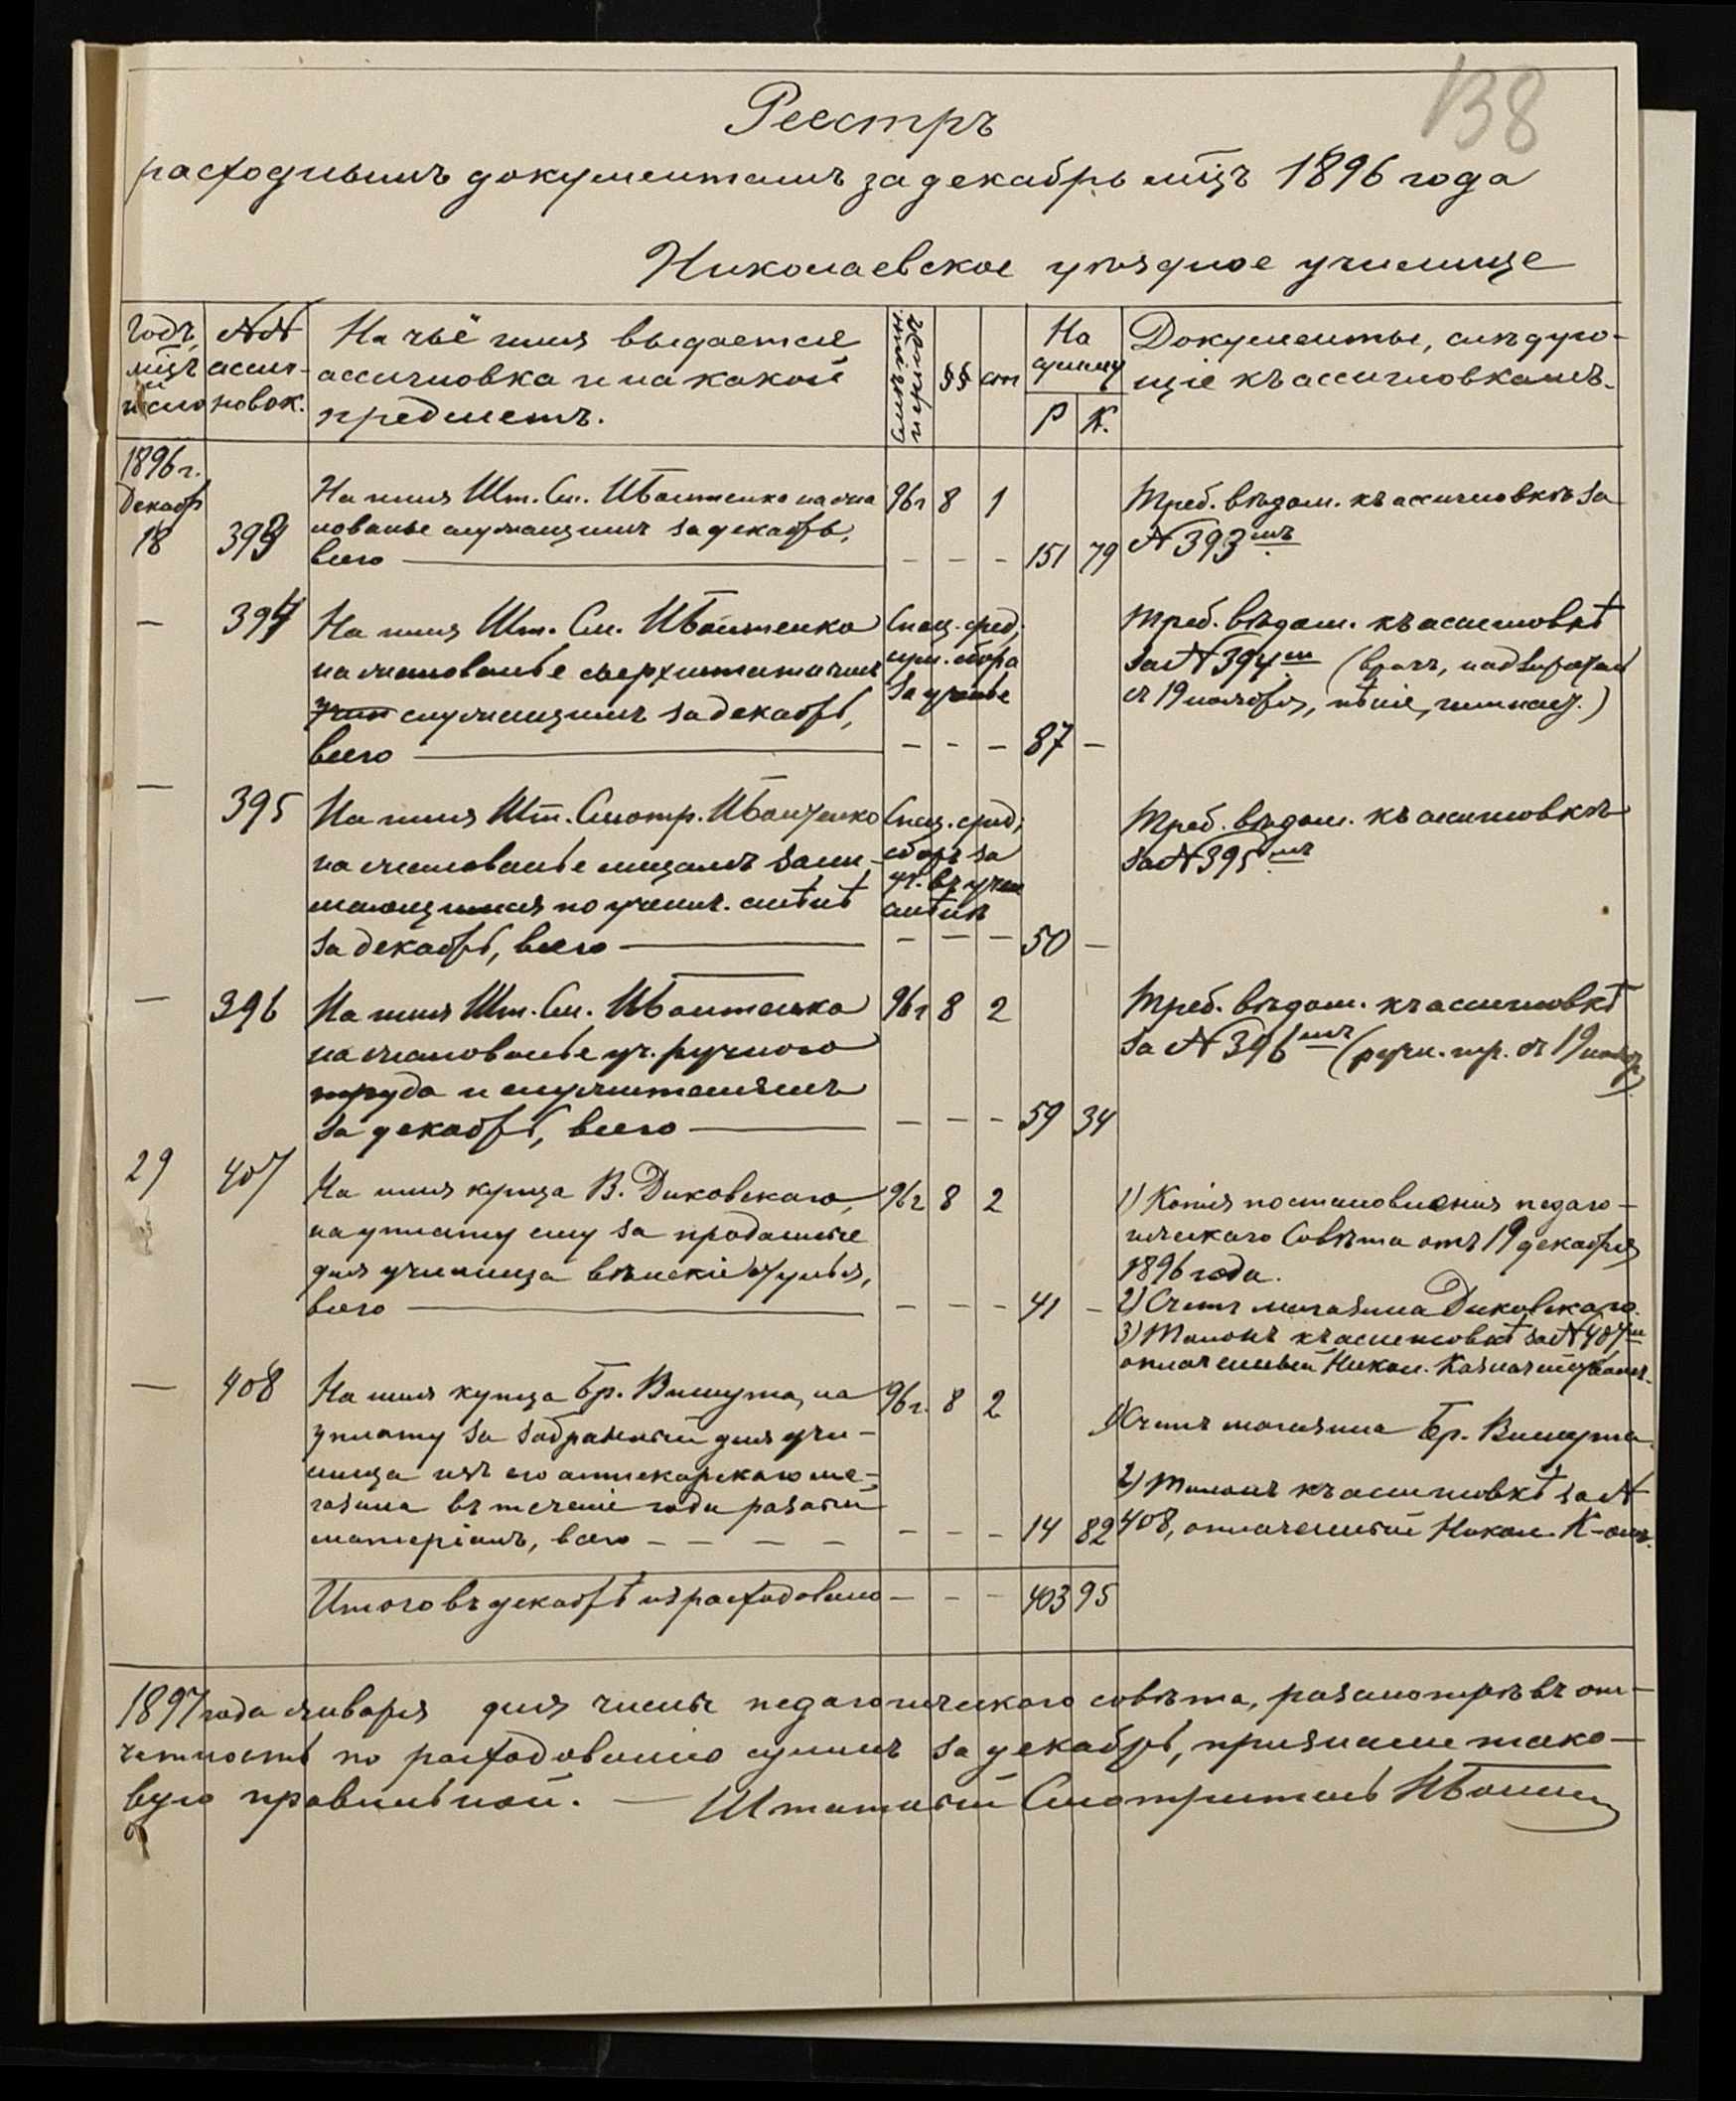 138
Реестръ
расходнымъ документамъ за декабрь мцъ 1896 года
Николаевское уѣздное училище
Годъ, мцъ и число
№№ ассиг-новок.
На чьё имя выдается
ассигновка и на какой
предметъ.
§§
ст
На сумму
Р К.
Документы, слѣдую-
щіе къ ассигновкамъ.
1896 г.
Декабр
18 393 На имя Шт. См. Иващенко на жа
лованье служащимъ за декабрь, 96 г 8 1
всего — — — 151 79
Треб. вѣдом. къ ассигновкѣ за
№ 393мъ
— 394 На имя Шт. См. Иващенко
на жалованье сверхштатнымъ
служащимъ за декабрь,
всего — — — 87 —
Спец. сред,
сбора
за ученье
Треб. вѣдом. къ ассигновкѣ
за № 394м (врачъ, надзиратель
съ 19 ноября, пѣніе, гимнаст.)
— 395 На имя Шт. Смотр. Иващенко
на жалованье лицамъ зани-
мающимся по учен. смѣнѣ
за декабрь, всего — — — 50 —
Спец. сред,
сборъ за
уч. въ учен
смѣнѣ
Треб. вѣдом. къ ассигновкѣ
за № 395мъ
— 396 На имя Шт. См. Иващенко 96 г 8 2
на жалованье уч. ручного
труда и служителямъ
за декабрь, всего — — — 59 34
Треб. вѣдом. къ ассигновкѣ
за № 396мъ (ручн. тр. съ 19 ноябр)
29 407 На имя купца В. Диковскаго, 96 г 8 2
на уплату ему за проданные
для училища вѣнскіе стулья,
всего — — — 41 —
1) Копія постановленія педаго-
гическаго Совѣта отъ 19 декабря
1896 года.
2) Счетъ магазина Диковскаго.
3) Талонъ къ ассигновкѣ за № 407м
оплаченный Никол. Казначействомъ.
— 408 На имя купца Бр. Вишута, на 96 г. 8 2
уплату за забранный для учи-
лища изъ его аптекарскаго ма-
газина въ теченіе года разный
матеріалъ, всего — — — 14 82
1) Счетъ магазина Бр. Вишута.
2) Талонъ къ ассигновкѣ за №
408, оплаченный Никол. К-омъ.
Итого въ декабрѣ израсходовано — — — 403 95
1897 года января дня члены педагогическаго совѣта, разсмотрѣвъ от-
четность по расходованію суммъ за декабрь, признали тако-
вую правильной. — Штатный Смотритель